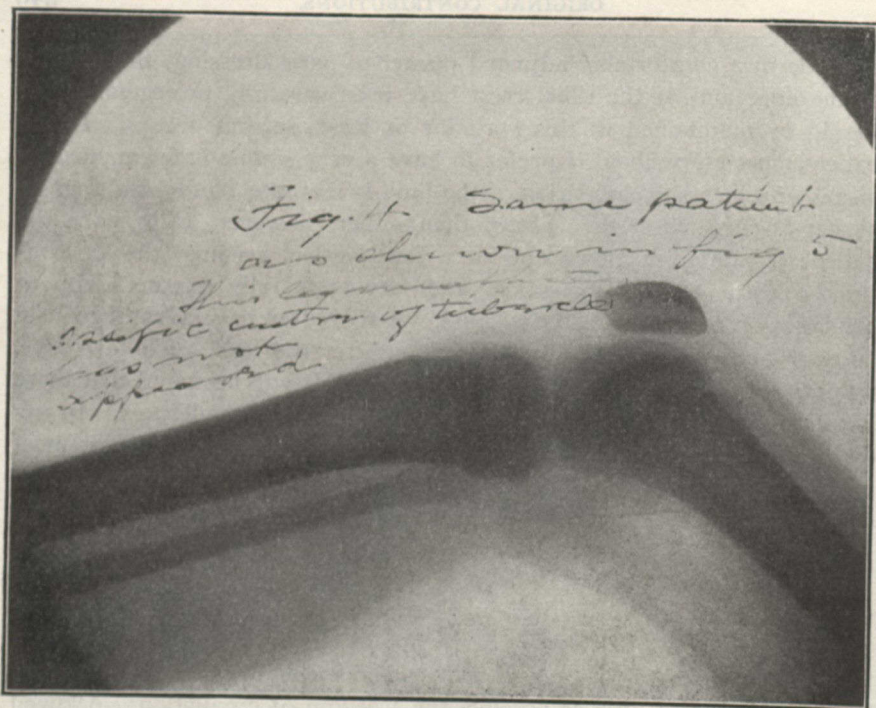 Fig. 4. Same patient
as shown in fig 5
This leg
ossific center of tubercle
has not
appeared